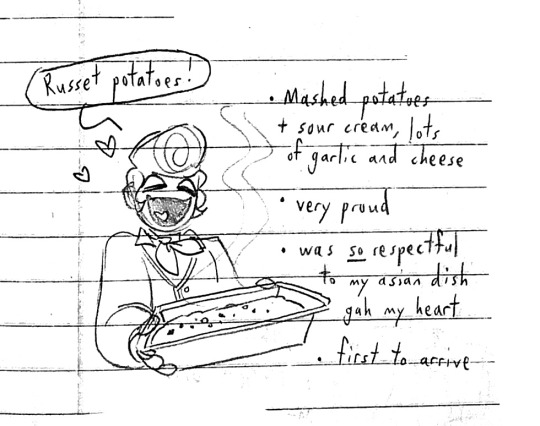 Russet potatoes!
• Mashed potatoes
+ sour cream, lots
of garlic and cheese
• very proud
• was so respectful
to my asian dish
gah my heart
• first to arrive